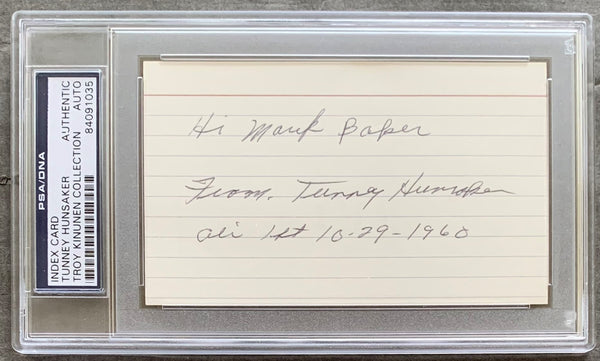 PSA/DNA
INDEX CARD
TUNNEY HUNSAKER AUTHENTIC
TROY KINUNEN COLLECTION AUTO
84091035
Hi Mark Baker
From. Tunney Hunsaker
Ali 1st 10-29-1960